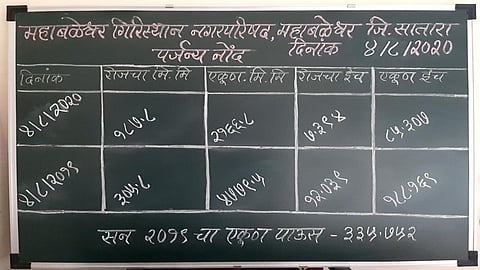 महाबळेश्वर गिरिस्थान नगरपरिषद, महाबळेश्वर जि.सातारा
पर्जन्य नोंद दिनांक ४/८/२०२०
दिनांक रोजचा मि.मि एकूण.मि.मि रोजचा इंच एकूण इंच
४/८/२०२० १८७.८ २१६६.८ ७.३९४ ८५.३०७
४/८/२०१९ ३०५.८ ४७७९.५ १२.०३९ १८८.१६९
सन २०१९ चा एकूण पाऊस - ३३५.७५२